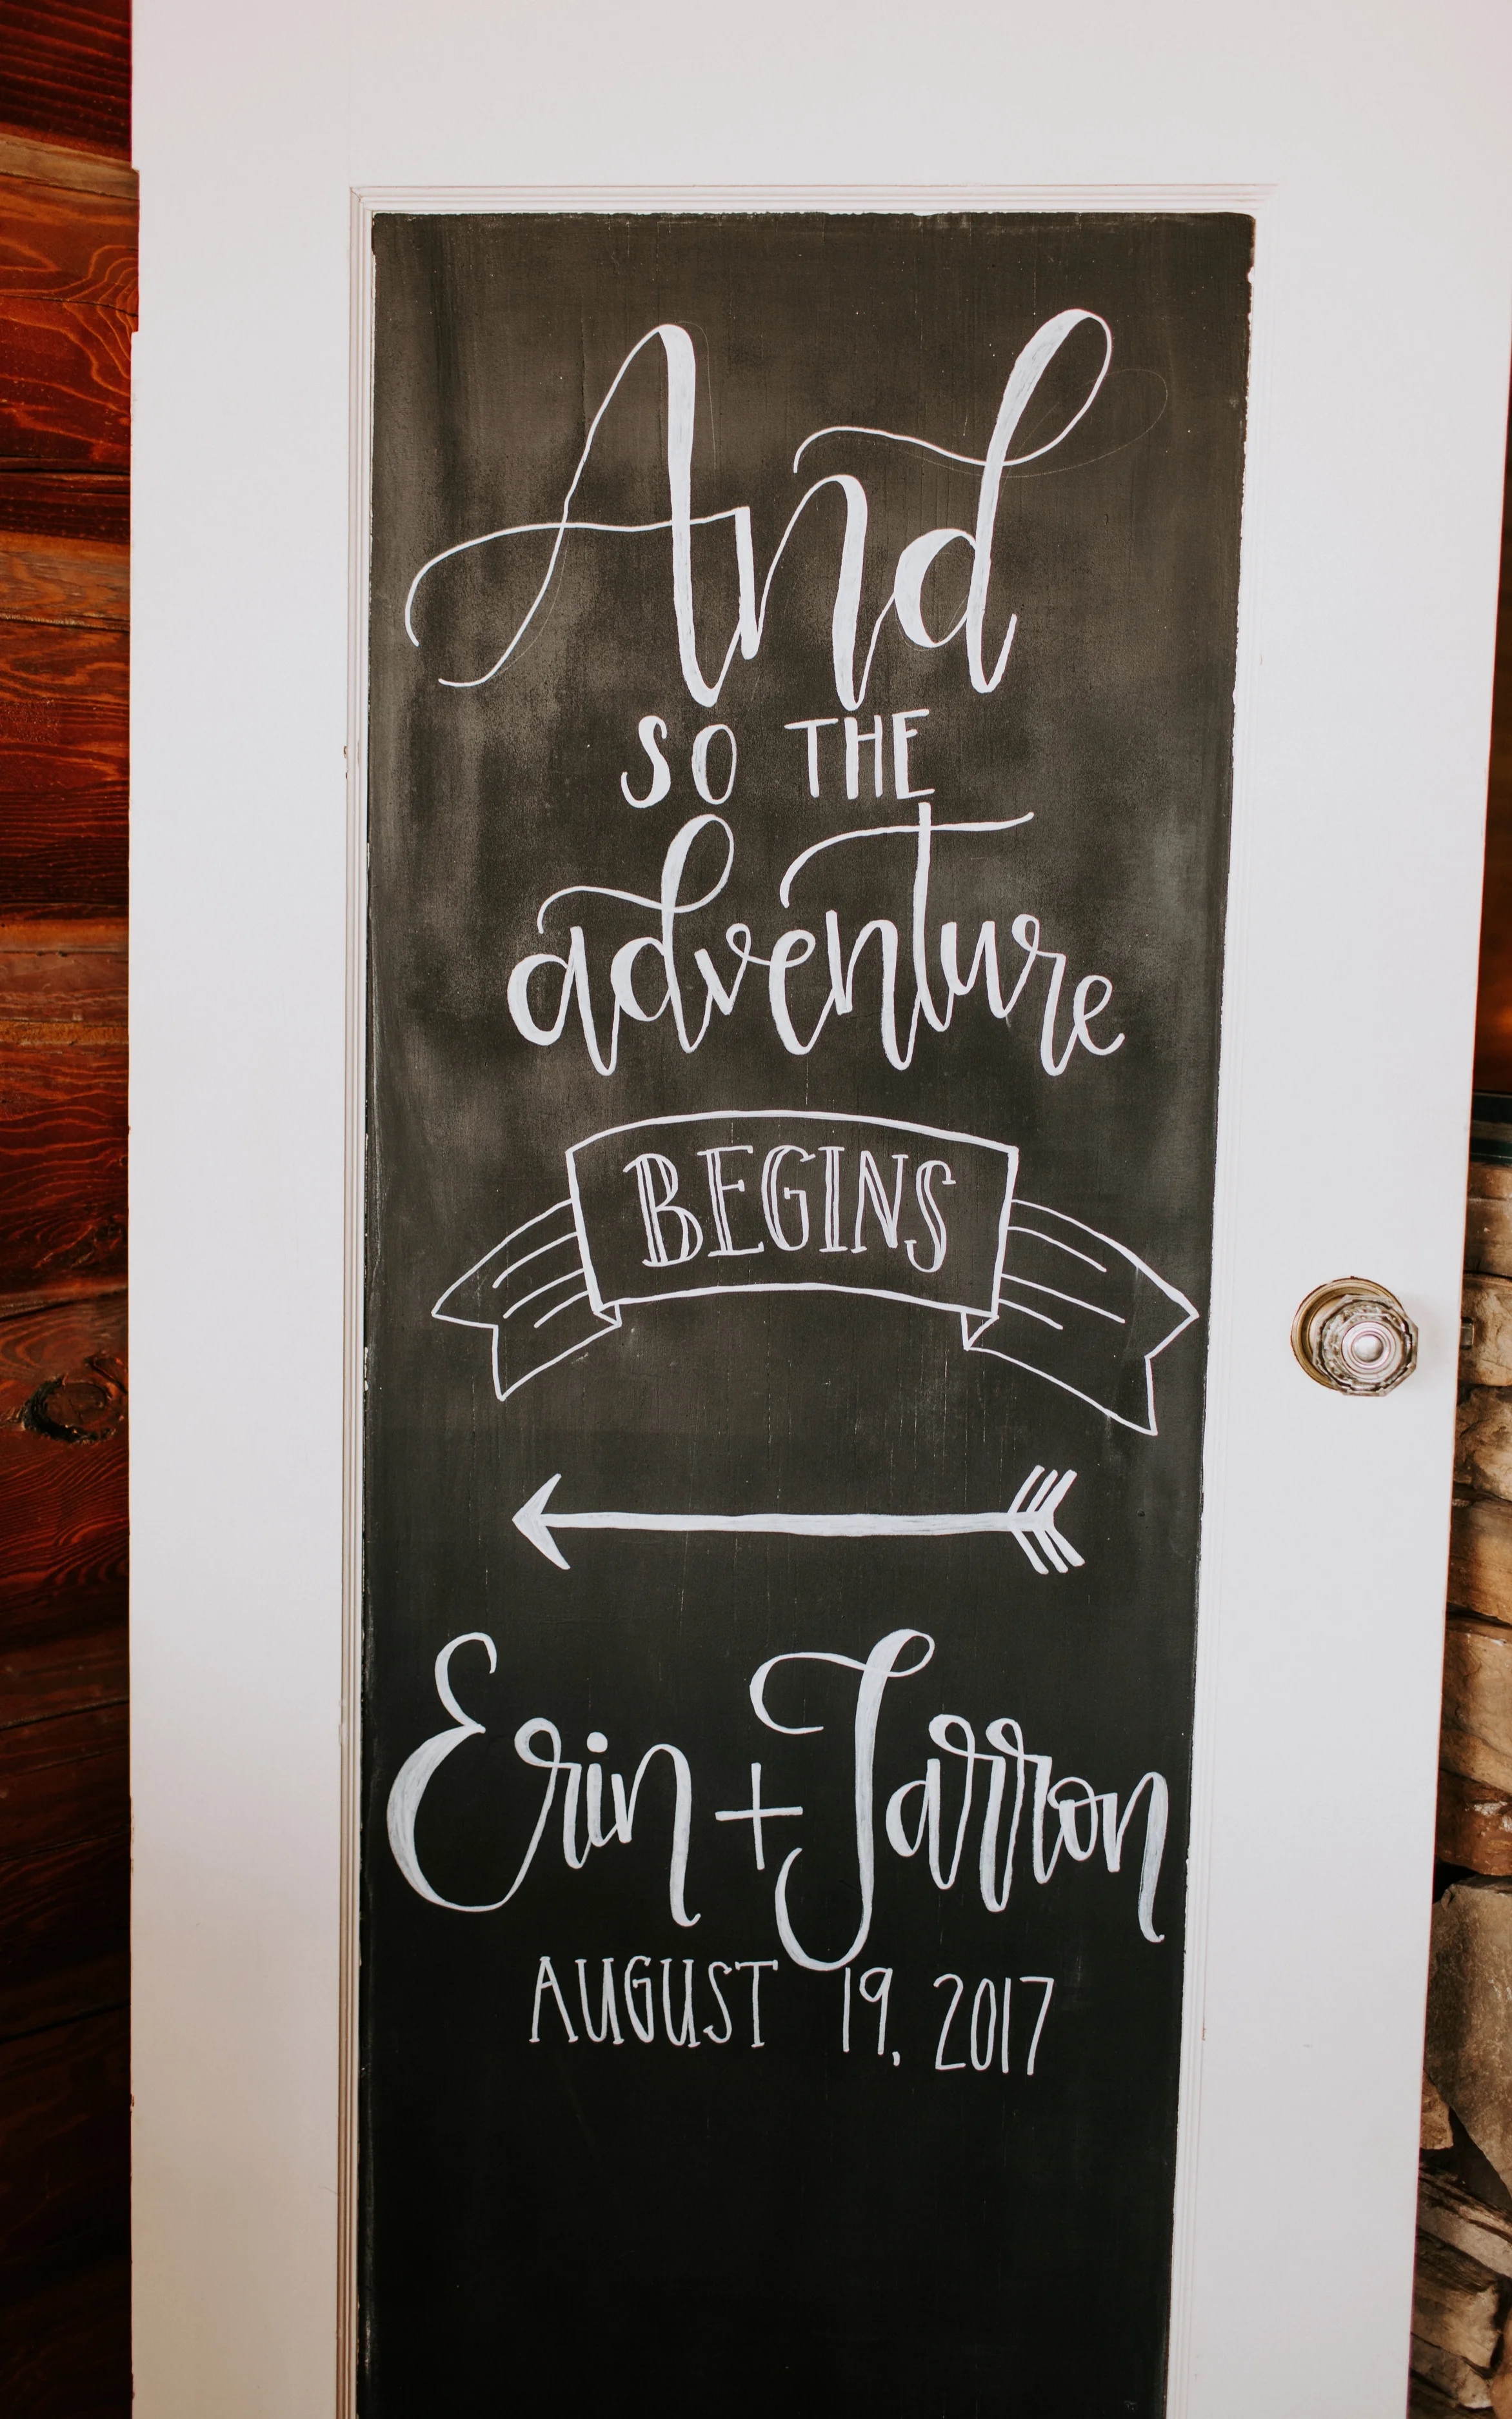 And
SO THE
adventure
BEGINS
Erin + Jarron
AUGUST 19, 2017